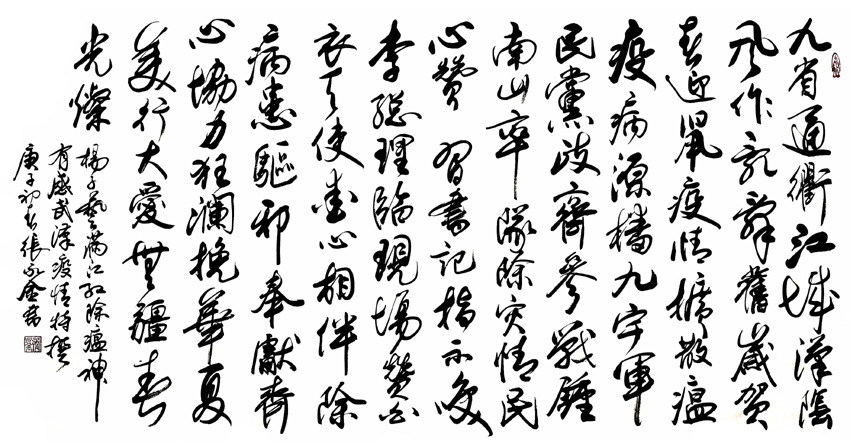 九省通衢江城漢陰
風作亂辭舊歲賀
春迎鼠疫情擴散瘟
疫病源播九宇軍
民黨政齊參戰鍾
南山率隊除災情民
心贊 習書記指示喚
李總理臨現場贊白
衣天使愛心相伴除
病患驅邪奉獻齊
心協力狂瀾挽華夏
美行大愛無疆春
光燦
楊子藝滿江紅除瘟神
有感武漢疫情特撰
庚子初春張永金書